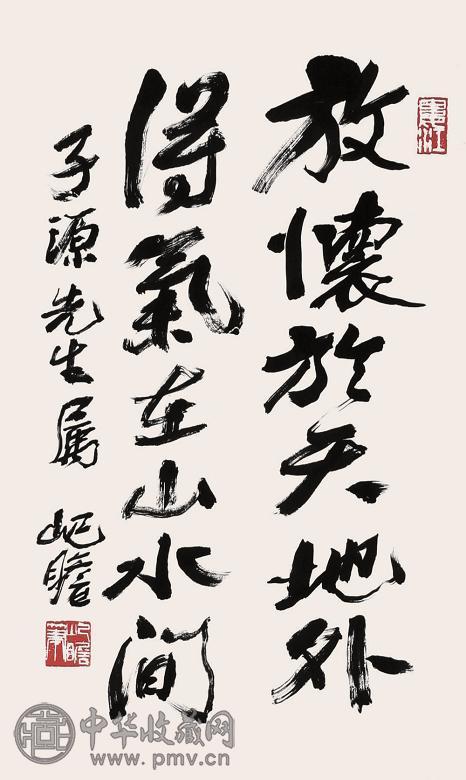 放懷於天地外
得氣在山水間
子源先生属 屺瞻
中华收藏网
www.pmv.cn